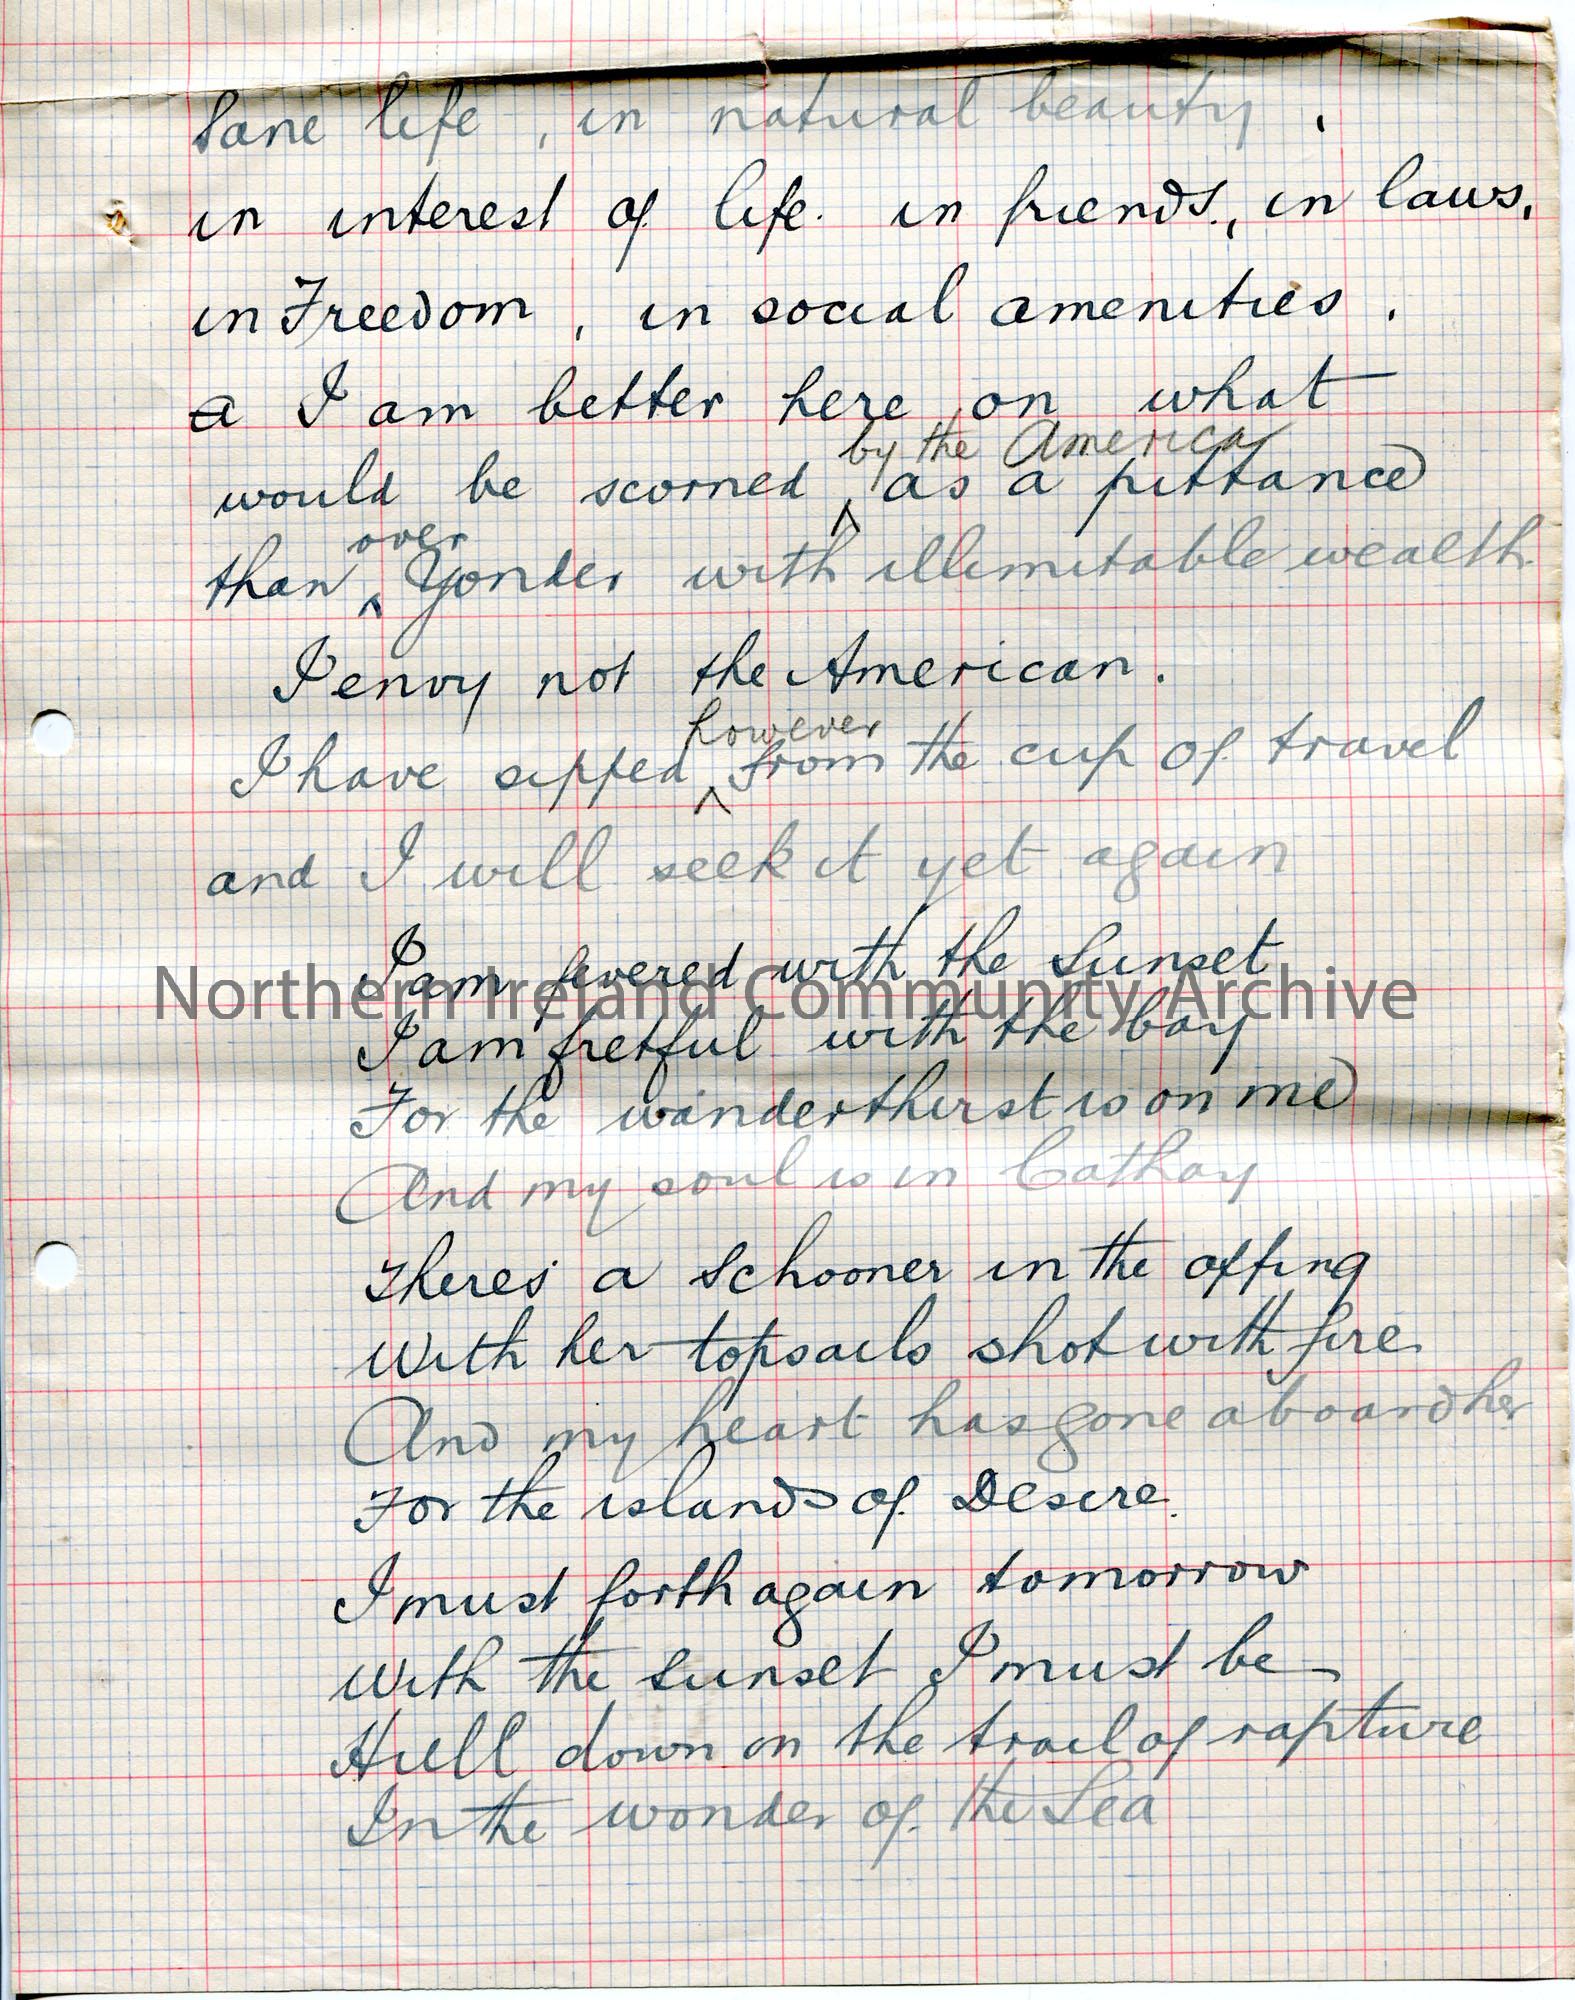 Sane life, in natural beauty,
in interest of life. in friends, in laws,
in Freedom, in social amenities.
a I am better here on what
by the America
would be scorned ^ as a pittance
over
than ^ Yonder with illimitable wealth.
I envy not the American.
however
I have sipped ^ from the cup of travel
and I will seek it yet again
I am fevered with the Sunset
Northern Ireland Community Archive
I am fretful with the bay
For the wanderthirst is on me
And my soul is in Cathay
There's a Schooner in the offing
With her topsails shot with fire.
And my heart has gone aboard her
For the islands of Desire.
I must forth again tomorrow
With the Sunset I must be
Hull down on the trail of rapture
In the wonder of the Sea